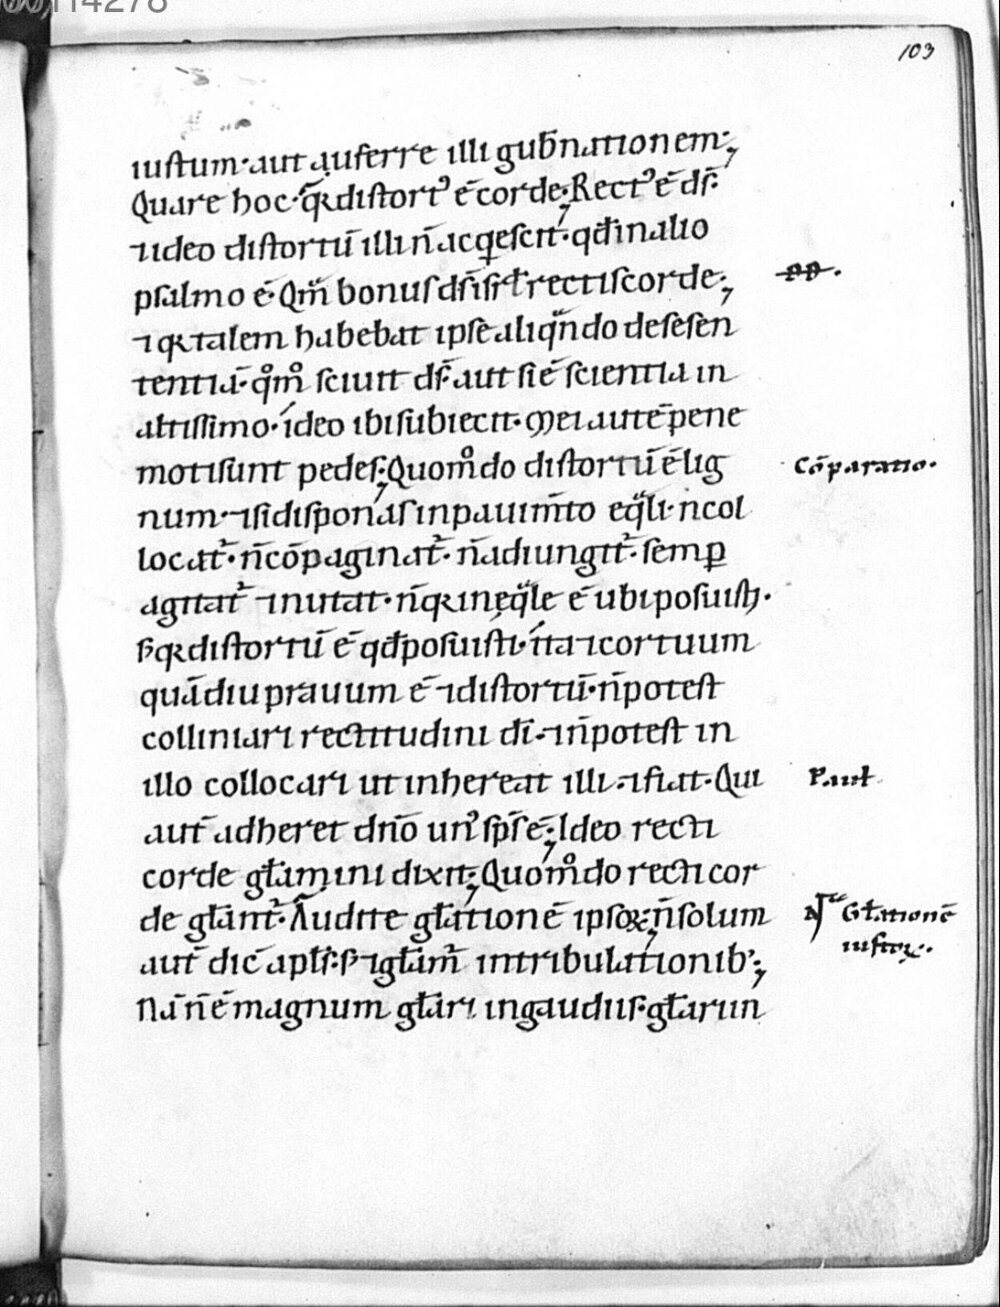 103
iustum· aut auferre illi gub̄nationem·,
Quare hoc· q̄a distort᾽ ē corde·, Rect᾽ ē ds̄·
⁊ ideo distortū illi n̄ acq̣escit· qđ in alio
psalmo ē· Qm̄ bonus ds̄ isrł rectis corde·,
⁊ qa talem habebat ipse aliqn̄do de se sen
tentiā· qͦmͦ sciuit ds̄· aut si ē scientia in
altissimo· ideo ibi subiecit· Mei autē pene
moti sunt pedes·, Quomͦdo distortū ē lig
num· ⁊ si disponas in pauim̄to eq̄li· n̄ col
locat᷑· n̄ cōpaginat᷑· n̄ adiungit᷑· semꝑ
agitat᷑ ⁊ nutat· n̄ qa ineq̄le ē ubi posuisti·
ꝫ qa distortū ē qđ posuisti· ita ⁊ cor tuum
quādiu prauum ē ⁊ distortū· n̄ potest
colliniari rectitudini dī· ⁊ n̄ potest in
illo collocari ut inhereat illi· ⁊ fiat· Qui
aut̄ adheret dn̄o un᾽ sp̄s ē·, Ideo recti
corde głamini dixit·, Quomͦdo recti cor
de głant᷑· Audite głationē ipsoꝝ·, n̄ solum
aut̄ dic̄ apłs· ꝫ ⁊ głam᷑ in tribulationib᾽·,
Nā n̄ ē magnum głari in gaudiis· głari in
PP·
Cōparatio·
Paul
Nͭ Głationē
iustoꝝ·